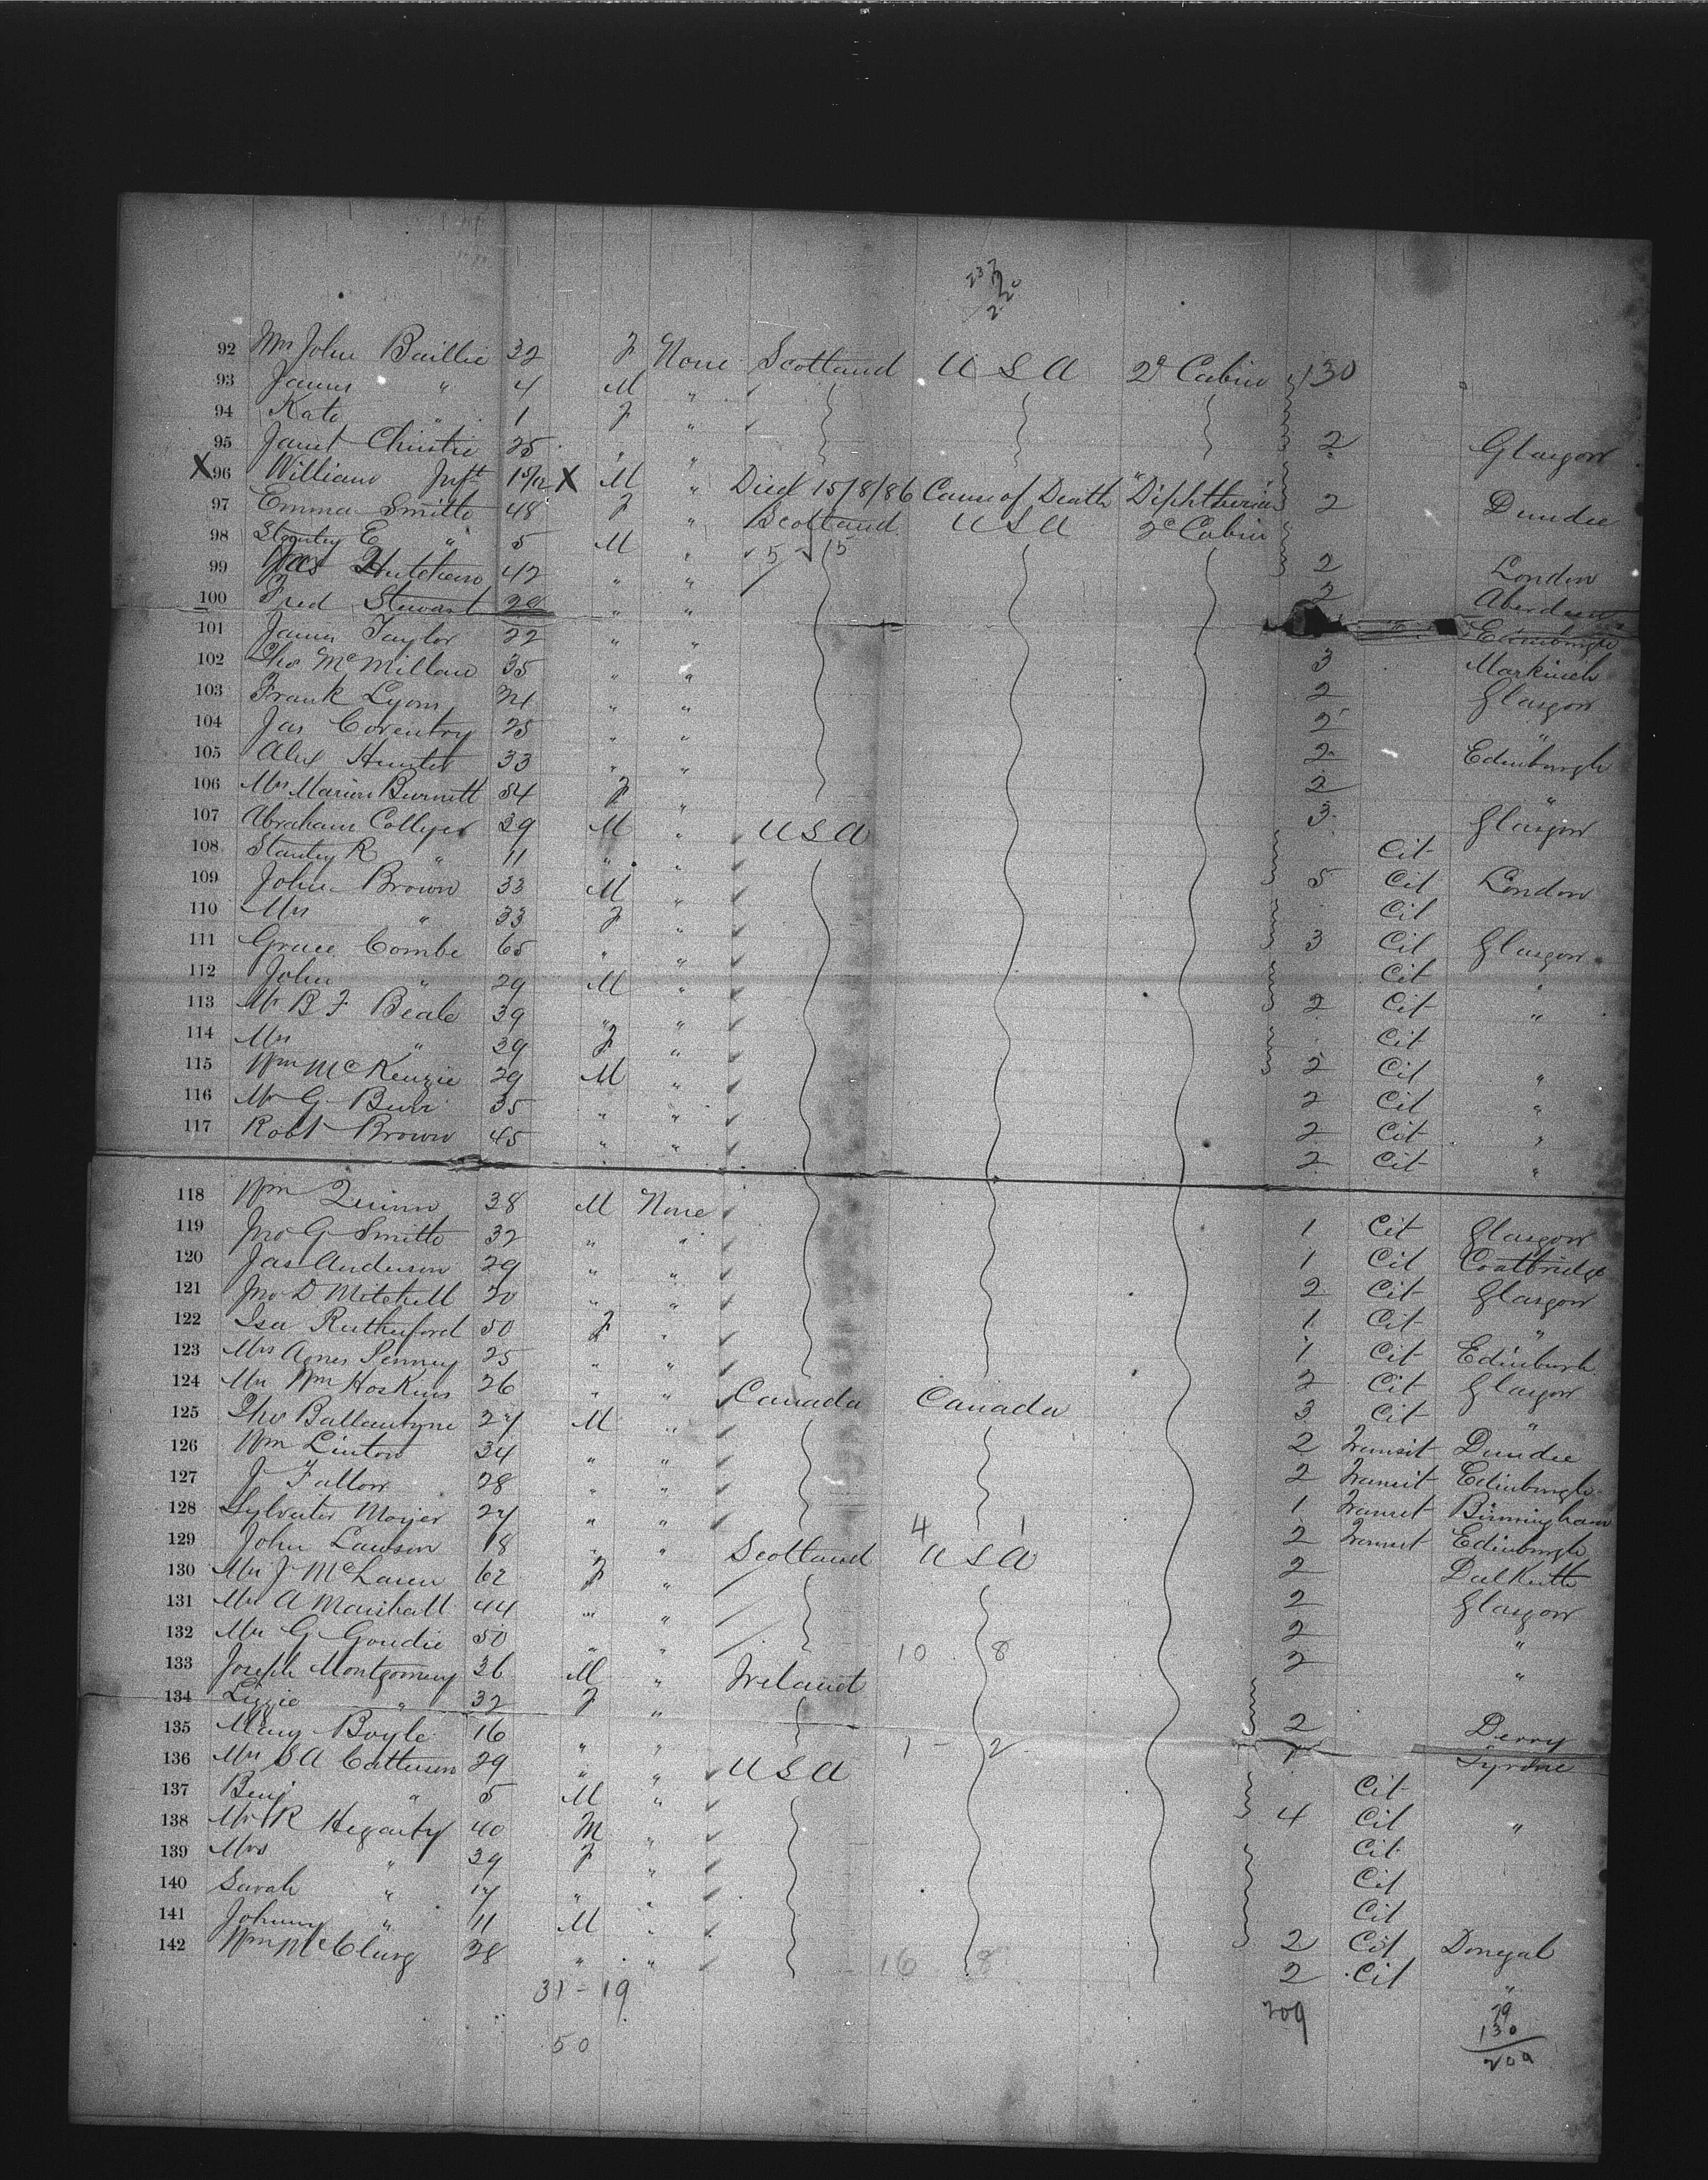 92 Mrs John Baillie 32 F None Scotland U S A 2d Cabin 130
93 James " 4 M "
94 Kate " 1 F " 2 Glasgow
95 Janet Christie 25 " "
X 96 William Inft 10/12 X M " Died 15/8/86 Cause of Death "Diphtheria" 2 Dundee
97 Emma Smith 48 F " Scotland U S A 2d Cabin
98 Stanley E " 5 M " 5 15 2 London
99 Hutcheon 42 " " 2 Aberdeen
100 Fred Stewart " " Edinburgh
101 James Taylor 22 " " 3 Markinch
102 Thos McMillan 35 " " 2 Glasgow
103 Frank Lyons 24 " " 2 "
104 Jas Coventry 25 " " 2 Edinburgh
105 Alex Hunter 33 " " 2 "
106 Mrs Marion Burnett 54 F " 3 Glasgow
107 Abraham Collyer 39 M " U S A Cit
108 Stanley R " 11 " " 5 Cit London
109 John Brown 33 M " Cit
110 Mrs " 33 F " 3 Cit Glasgow
111 Grace Combe 65 " " Cit "
112 John " 29 M " 2 Cit "
113 Mr B F Beale 39 " " Cit
114 Mrs " 39 F " 2 Cit "
115 Wm McKenzie 29 M " 2 Cit "
116 Mr G Burr 35 " " 2 Cit "
117 Robt Brown 45 " " 2 Cit "
118 Wm Quinn 38 M None 1 Cit Glasgow
119 Jno G Smith 32 " " 1 Cit Coatbridge
120 Jas Anderson 29 " " 2 Cit Glasgow
121 Jno D Mitchell 20 " " 1 Cit "
122 Isa Rutherford 50 F " 1 Cit Edinburgh
123 Mrs Agnes Penney 25 " " 2 Cit Glasgow
124 Mrs Wm Hoskins 26 " " Canada Canada 3 Cit "
125 Thos Ballantyne 27 M " 2 Transit Dundee
126 Wm Linton 34 " " 2 Transit Edinburgh
127 J Fallon 28 " " 1 Transit Birmingham
128 Sylvester Moyer 27 " " 4 1 2 Transit Edinburgh
129 John Lawson 18 " " Scotland U S A 2 Dalkeith
130 Mrs J McLaren 62 F " 2 Glasgow
131 Mrs A Marshall 44 " " 2 "
132 Mrs G Goudie 50 " " 10 8 2 "
133 Joseph Montgomery 36 M " Ireland
134 Lizzie " 32 F " 2 Derry
135 Mary Boyle 16 " " 1 - 2 1 Tyrone
136 Mrs S A Catterson 29 " " U S A Cit
137 Benj " 5 M " 4 Cit "
138 Mr R Hegarty 40 M " Cit
139 Mrs " 39 F " Cit
140 Sarah " 17 " " Cit
141 Johnny " 11 M " 2 Cit Donegal
142 Wm McClurg 28 " " 16 8 2 Cit "
31 - 19 209 79
50 130
209